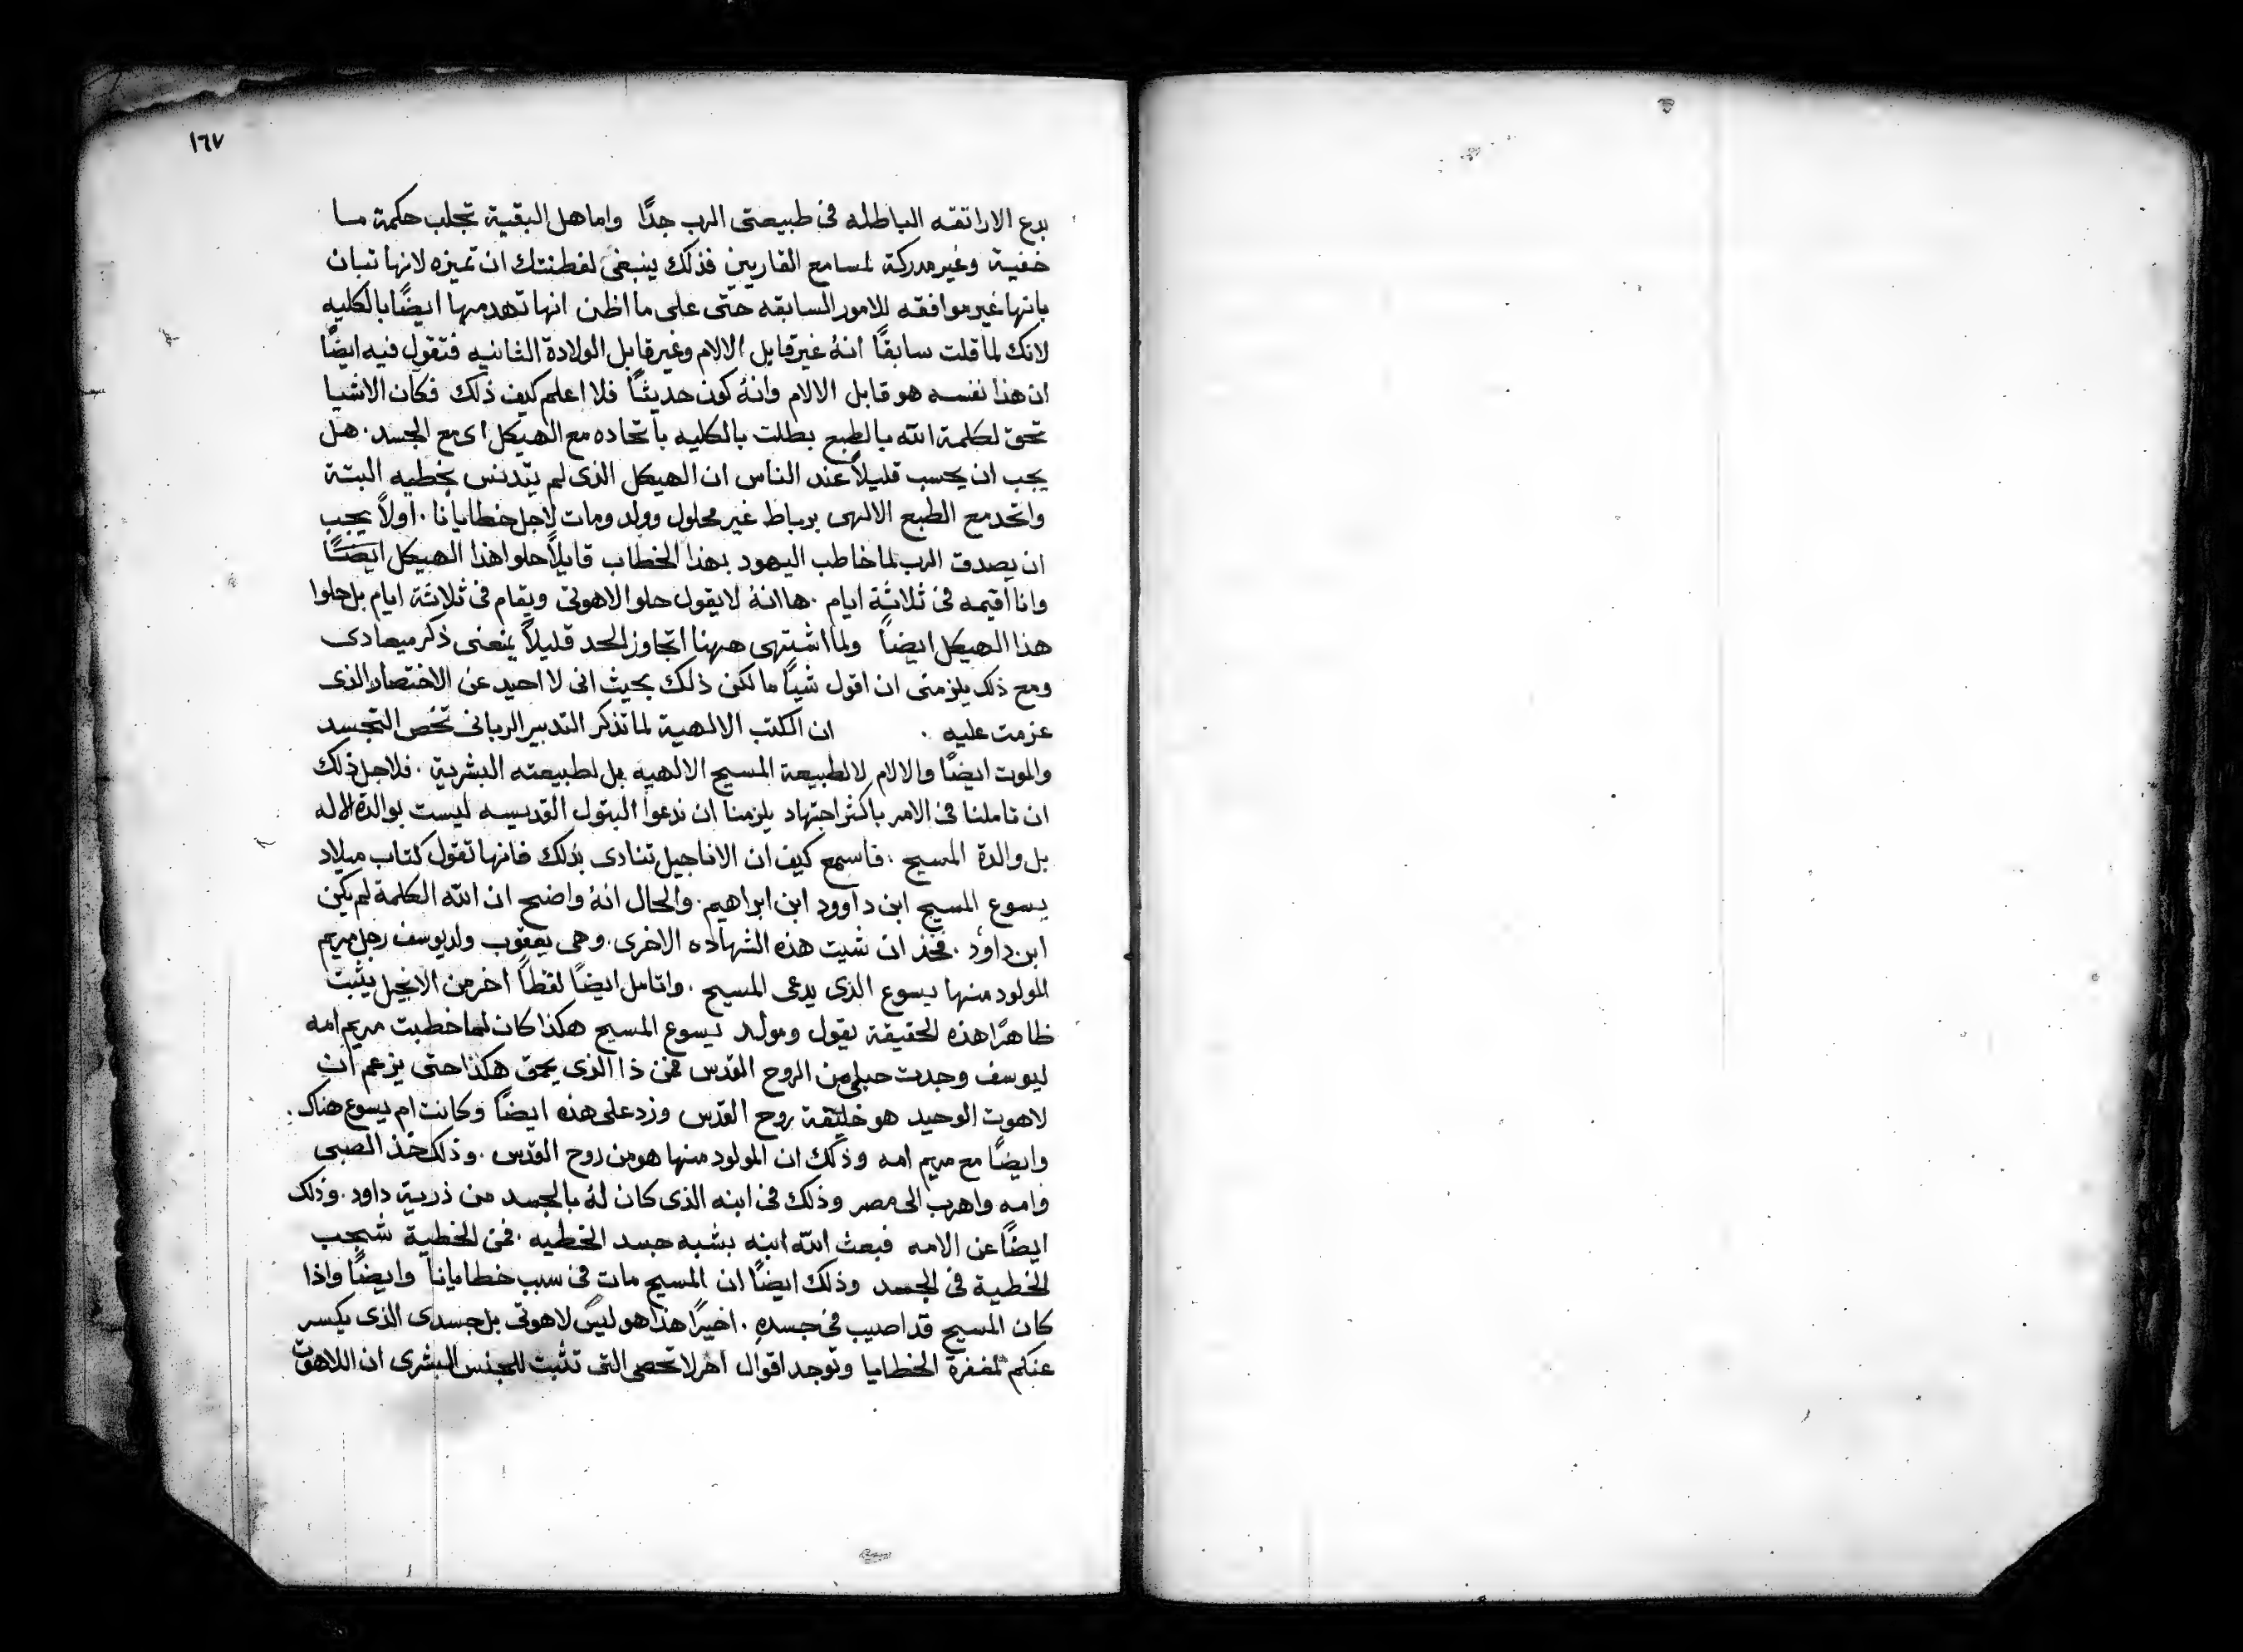 ١٦٧
بدع الاراتقه الباطله فى طبيعتى الرب جدًا واما هل البقية تجلب حكمة مـا
خفية وغير مدركة لمسامع القاريين فذلك ينبغى لفطنتك ان تميزه لانها تبان
بانها غير موافقه للامور السابقه حتى على ما اظن انها تهدمها ايضًا بالكليه
لانك لما قلت سابقًا انهُ غير قابل الالام وغير قابل الولادة الثانيه فتقول فيه ايضًا
ان هذا نفسه هو قابل الالام وانهُ كون حديثًا فلا اعلم كيف ذلك فكان الاشيا
تحق لكلمة الله بالطبع بطلت بالكليه باتحاده مع الهيكل اى مع الجسد . هل
يجب ان يحسب قليلاً عند الناس ان الهيكل الذى لم يتدنس بخطيه البتة
واتحد مع الطبع الالهى برباط غير محلول وولد ومات لاجل خطايانا . اولاً يجب
ان يصدق الرب لما خاطب اليهود بهذا الخطاب قايلاً حلوا هذا الهيكل ايضًا
وانا اقيمه فى ثلاثة ايام . ها انهُ لا يقول حلوا لاهوتى ويقام فى ثلاثة ايام بل حلوا
هذا الهيكل ايضاً ولما اشتهى ههنا اتجاوز الحد قليلاً يمنعنى ذكر ميعادى
ومع ذلك يلزمنى ان اقول شيًا ما لكن ذلك بحيث انى لا احيد عن الاختصار الذى
عزمت عليه . ان الكتب الالهية لما تذكر التدبير الربانى تخص التجسد
والموت ايضًا والالام لا لطبيعة المسيح الالهيه بل لطبيعته البشرية . فلاجل ذلك
ان تاملنا فى الامر باكثر اجتهاد يلزمنا ان ندعوا البتول القديسه ليست بوالدة الاله
بل والدة المسيح . فاسمع كيف ان الاناجيل تنادى بذلك فانها تقول كتاب ميلاد
يسوع المسيح ابن داوود ابن ابراهيم . والحال انهُ واضح ان الله الكلمة لم يكن
ابن داود . فخذ ان شيت هذه الشهاده الاخرى . وهى يعقوب ولد يوسف رجل مريم
المولود منها يسوع الذى يدعى المسيح . واتامل ايضًا لفظاً اخر من الانجيل يثبت
ظاهرًا هذه الحقيقة يقول ومولد يسوع المسيح هكذا كان لما خطبت مريم امه
ليوسف وجدت حبلى من الروح القدس فمن ذا الذى يحمق هكذا حتى يزعم ان
لاهوت الوحيد هو خليقة روح القدس وزد على هذه ايضًا وكانت ام يسوع هناك .
وايضًا مع مريم امه وذلك ان المولود منها هو من روح القدس . وذلك خذ الصبى
وامه واهرب الى مصر وذلك فى ابنه الذى كان لهُ بالجسد من ذرية داود . وذلك
ايضًا عن الامه فبعث الله ابنه بشبه جسد الخطيه . فمن الخطية شجب
الخطية فى الجسد وذلك ايضًا ان المسيح مات فى سبب خطايانا وايضًا واذا
كان المسيح قد اصيب فى جسدهِ . اخيرًا هذا هو ليس لاهوتى بل جسدى الذى يكسر
عنكم لمغفرة الخطايا وتوجد اقوال اخر لا تحصى التى تثبت للجنس البشرى ان اللاهوت